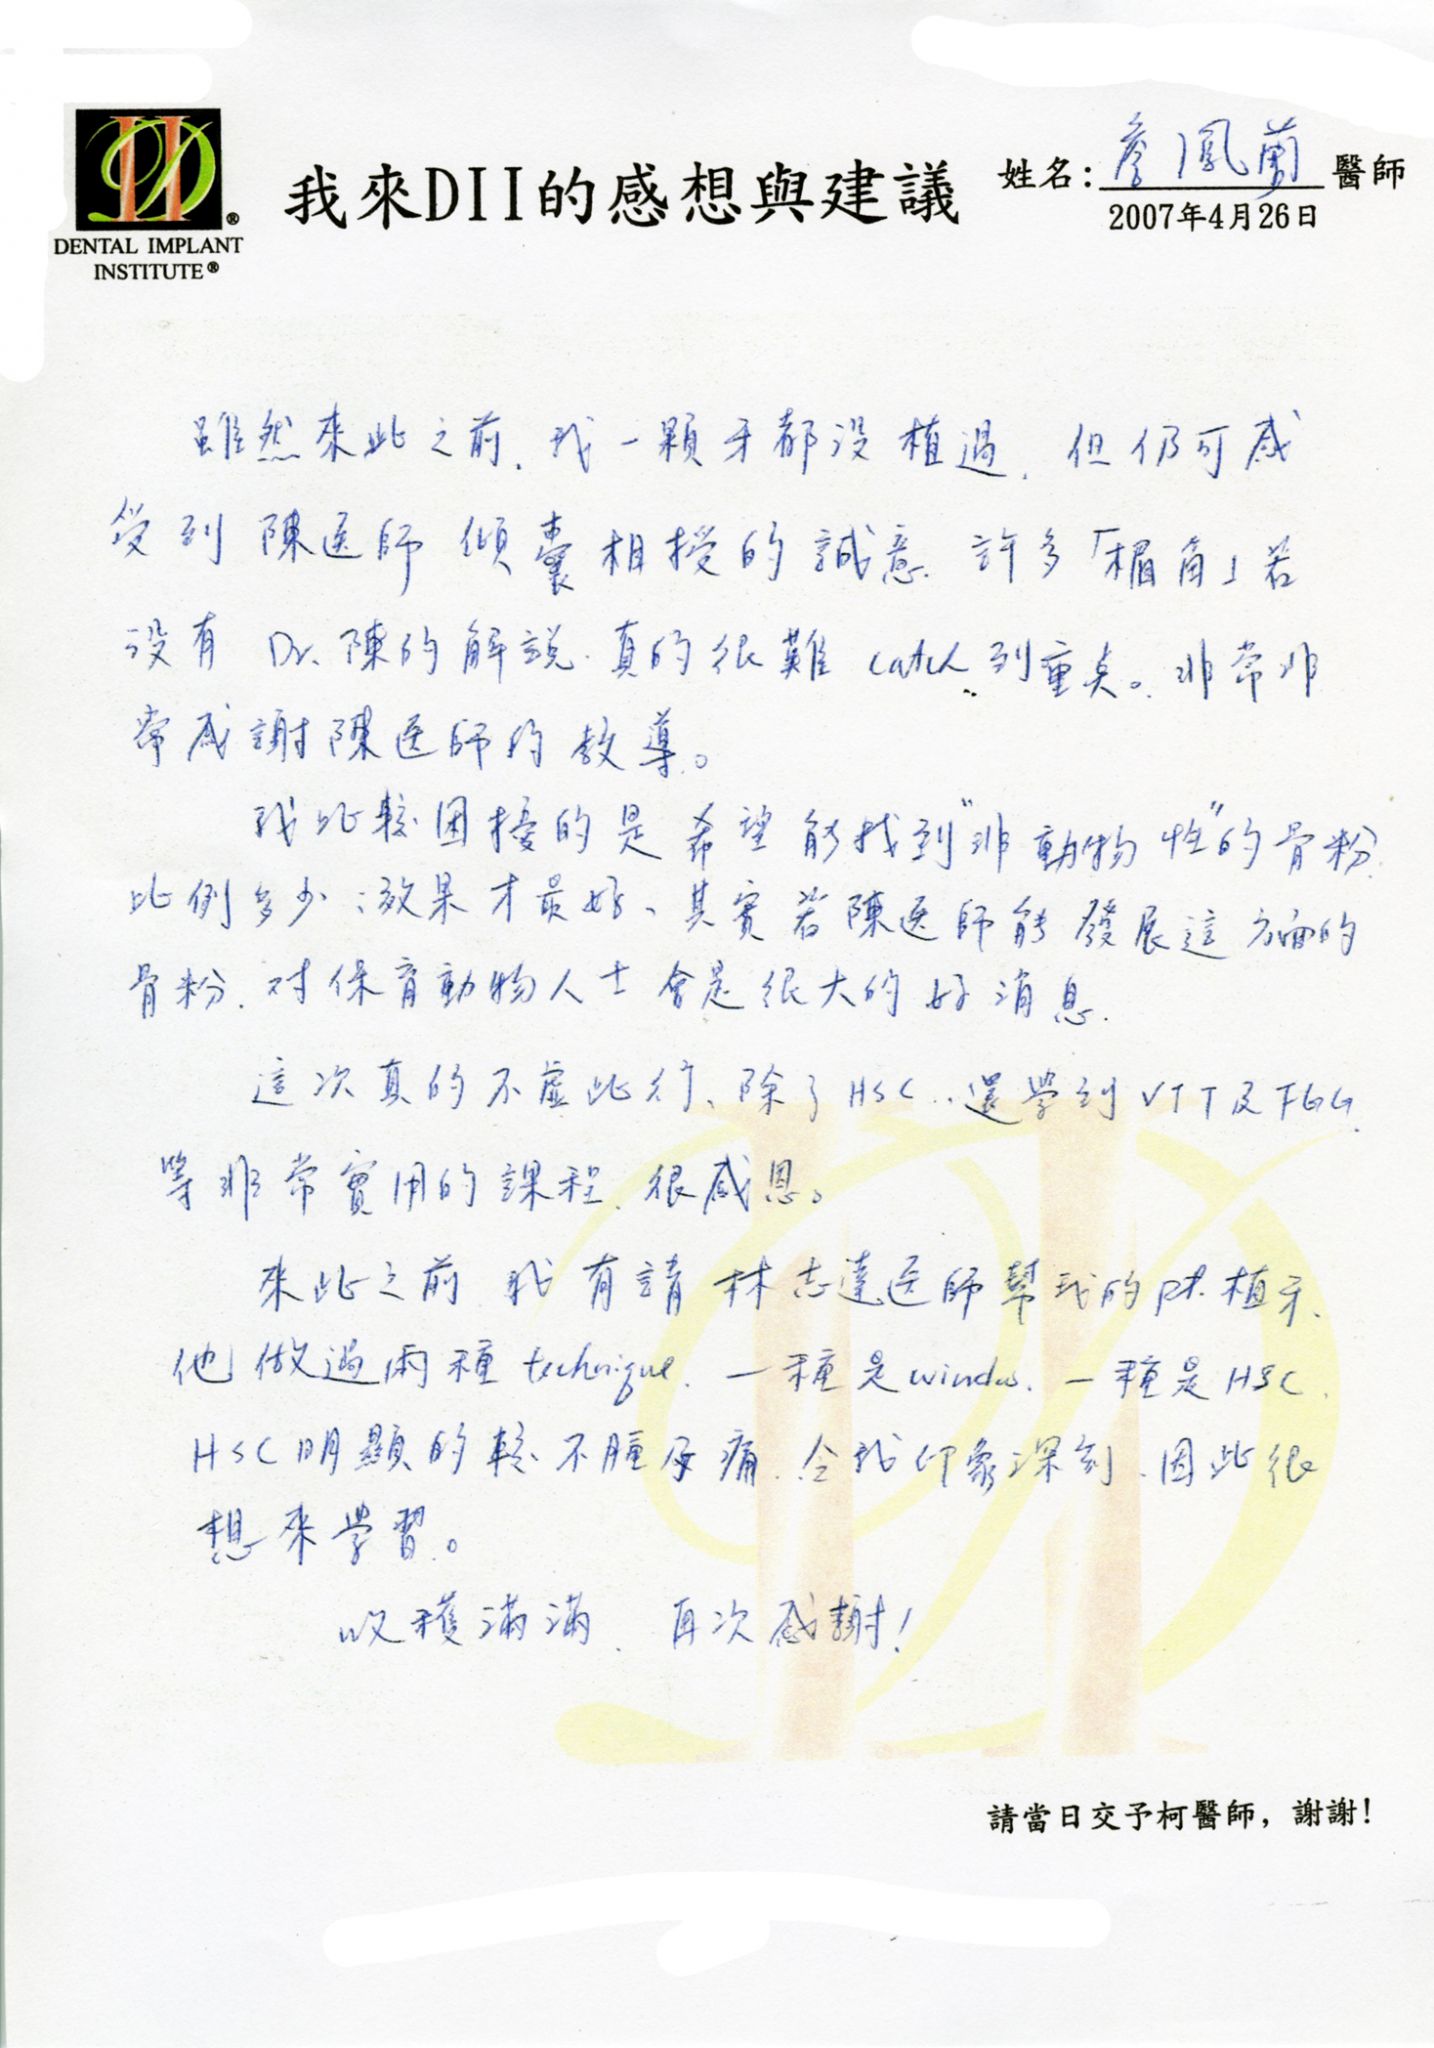 DENTAL IMPLANT
INSTITUTE®
我來DII的感想與建議
姓名:詹鳳蘭醫師
2007年4月26日
雖然來此之前,我一顆牙都沒植過,但仍可感
受到陳医師傾囊相授的誠意.許多「楣角」若
沒有Dr.陳的解說.真的很難catch到重点。非常非
常感謝陳医師的教導。
我比較困擾的是希望能找到"非動物性"的骨粉.
比例多少;效果才最好、其實若陳医師能發展這方面的
骨粉.对保育動物人士會是很大的好消息.
這次真的不虛此行、除了HSC..還學到VTT及FGG.
等非常實用的課程.很感恩。
來此之前 我有請林志達医師幫我的pt.植牙、
他做過兩種technique.一種是window.一種是HSC.
HSC明顯的較不腫及痛.令我印象深刻.因此很
想來學習。
收穫滿滿.再次感謝!
請當日交予柯醫師,謝謝!